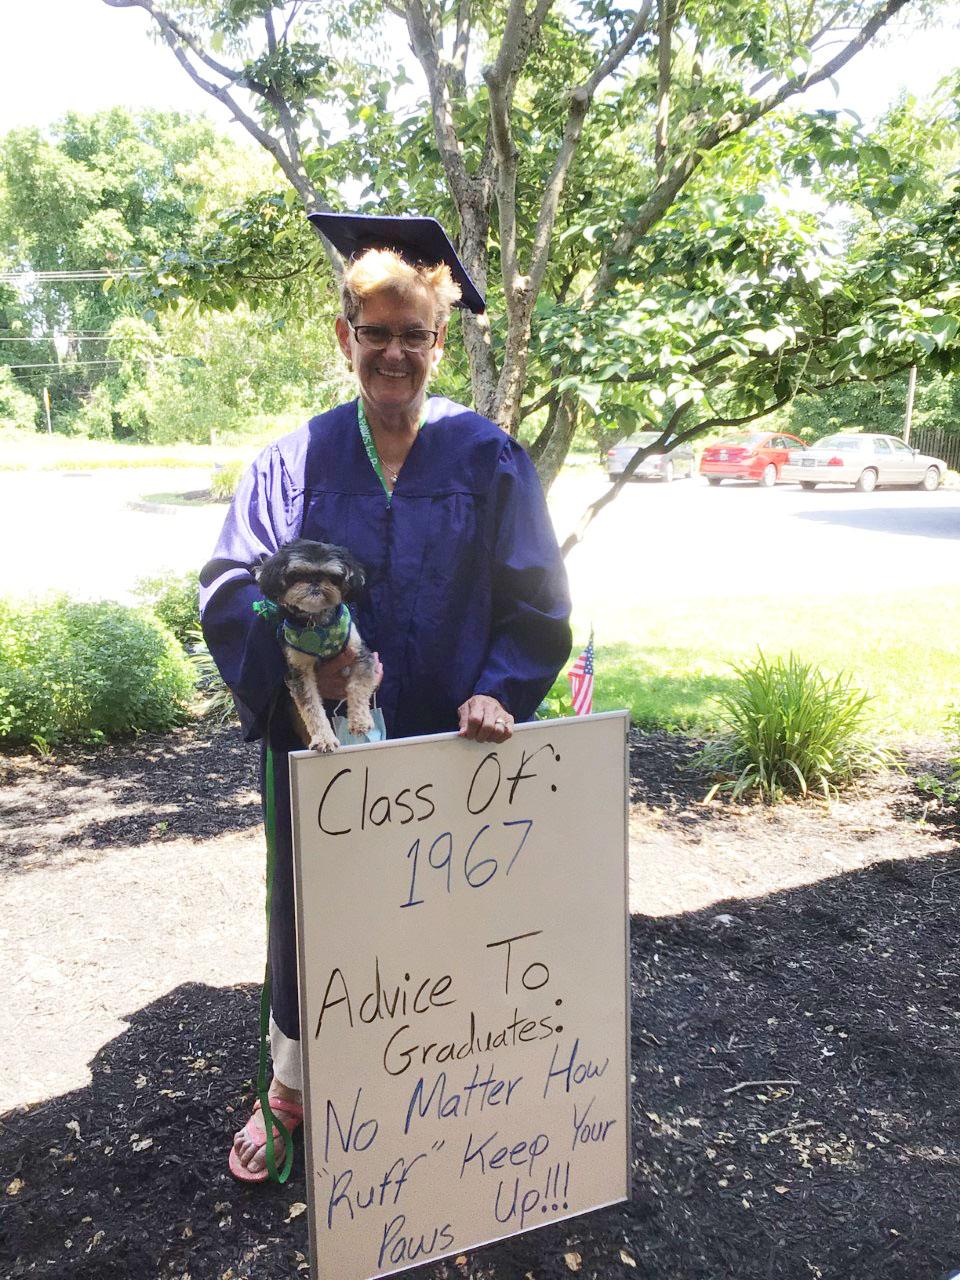 PAWS for P
Class Of:
1967
Advice To
Graduates:
No Matter How
"Ruff" Keep Your
Paws Up!!!